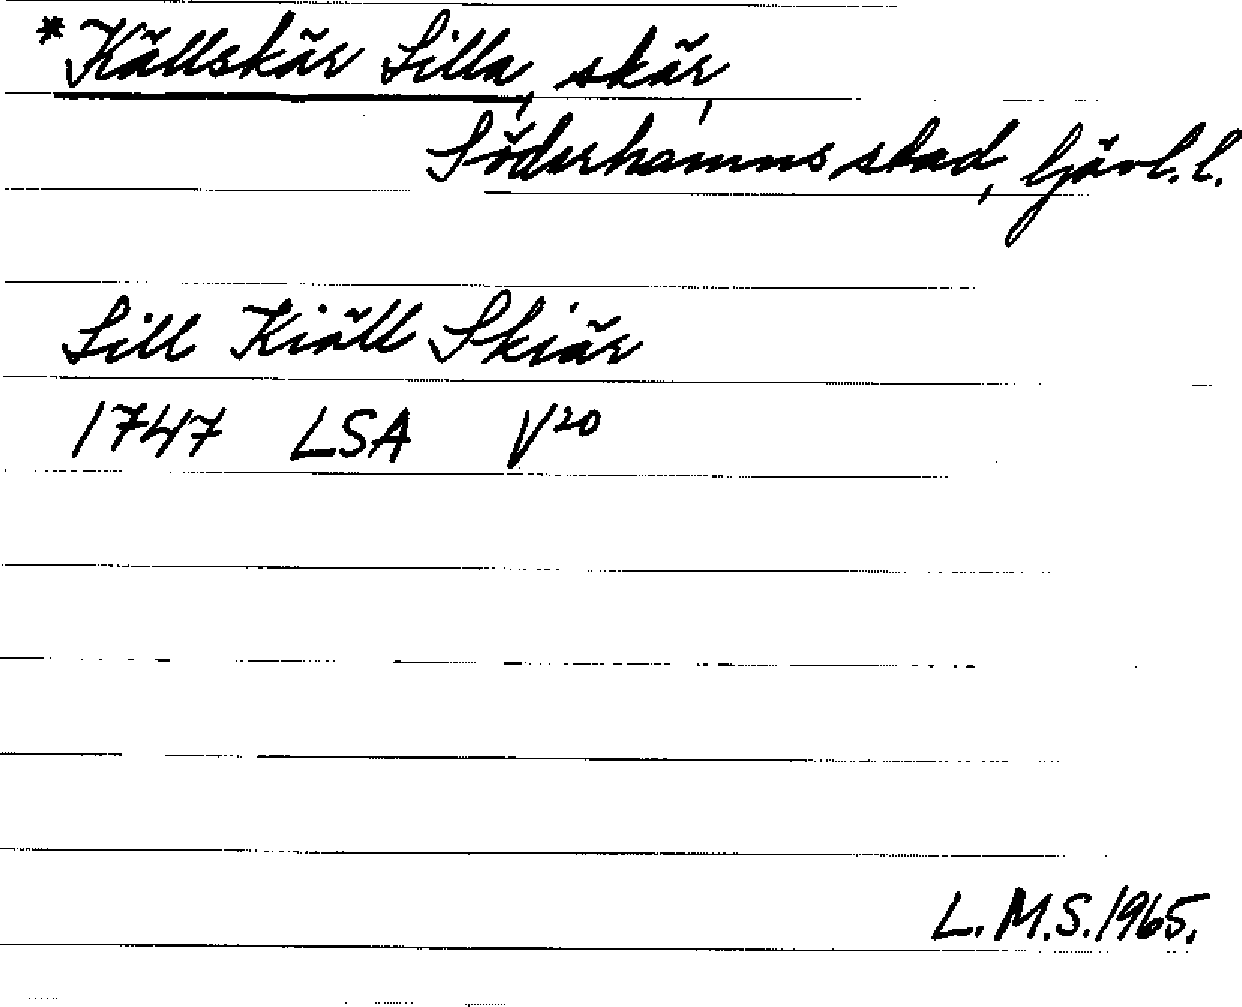 *Källskär Lilla, skär,
Söderhamns stad, Gävl.l.
Lill Kiäll Skiär
1747 LSA V²⁰
L.M.S.1965.